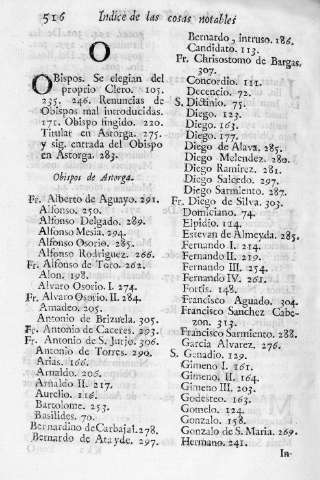 516 Indice de las cosas notables
O
OBispos. Se elegian del
proprio Clero. 105.
235. 246. Renuncias de
Obispos mal introducidas.
171. Obispo fingido. 220.
Titular en Astorga. 275.
y sig. entrada del Obispo
en Astorga. 283.
Obispos de Astorga.
Fr. Alberto de Aguayo. 291.
Alfonso. 250.
Alfonso Delgado. 289.
Alfonso Mesia. 294.
Alfonso Osorio. 285.
Alfonso Rodriguez. 266.
Fr. Alfonso de Toro. 262.
Alon. 198.
Alvaro Osorio I. 274.
Fr. Alvaro Osorio II. 284.
Amadeo. 205.
Antonio de Brizuela. 305.
Fr. Antonio de Caceres. 293.
Fr. Antonio de S. Jurjo. 306.
Antonio de Torres. 290.
Arias. 166.
Arnaldo. 205.
Arnaldo II. 217.
Aurelio. 116.
Bartolome. 253.
Basilides. 70.
Bernardino de Carbajal. 278.
Bernardo de Atayde. 297.
Bernardo, intruso. 186.
Candidato. 113.
Fr. Chrisostomo de Bargas.
307.
Concordio. 111.
Decencio. 72.
S. Dictinio. 75.
Diego. 123.
Diego. 163.
Diego. 177.
Diego de Alava. 285.
Diego Melendez. 280.
Diego Ramirez. 281.
Diego Salcedo. 297.
Diego Sarmiento. 287.
Fr. Diego de Silva. 303.
Domiciano. 74.
Elpidio. 124.
Estevan de Almeyda. 285.
Fernando I. 214.
Fernando II. 219.
Fernando III. 254.
Fernando IV. 261.
Fortis. 148.
Francisco Aguado. 304.
Francisco Sanchez Cabe-
zon. 313.
Francisco Sarmiento. 288.
Garcia Alvarez. 276.
S. Genadio. 129.
Gimeno I. 161.
Gimeno II. 164.
Gimeno III. 203.
Godesteo. 163.
Gomelo. 124.
Gonzalo. 158.
Gonzalo de S. Maria. 269.
Hermano. 241.
In-